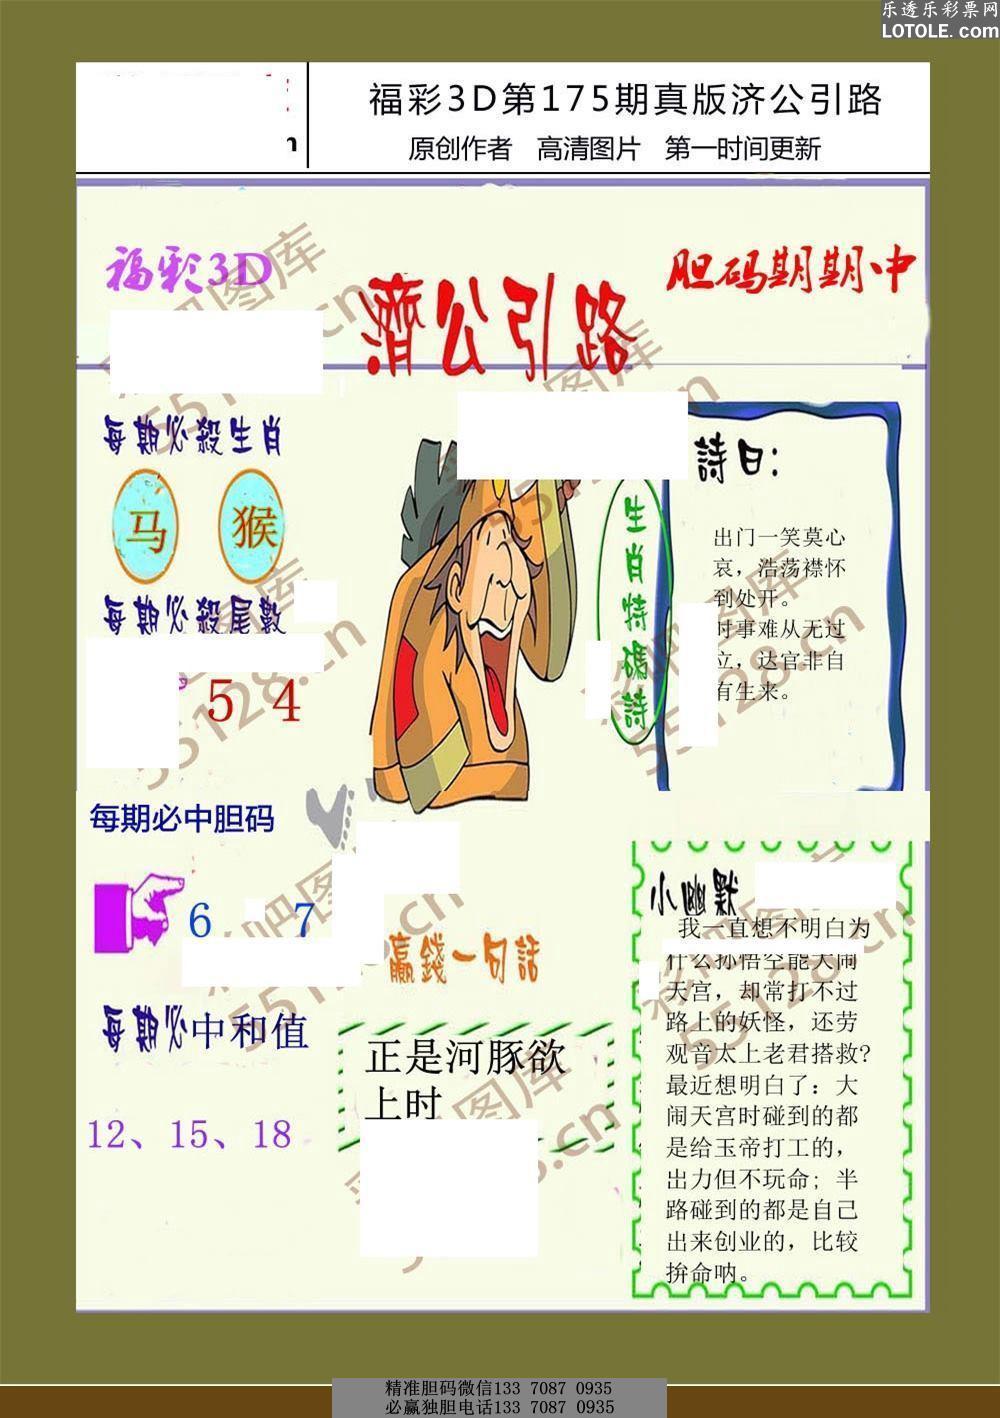 乐透乐彩票网
LOTOLE.com
福彩3D第175期真版济公引路
原创作者 高清图片 第一时间更新
福彩3D
胆码期期中
濟公引路
每期必殺生肖
马 猴
每期必殺尾數
5 4
每期必中胆码
6 7
每期必中和值
12、15、18
生肖特碼詩
詩曰：
出门一笑莫心
哀，浩荡襟怀
到处开。
时事难从无过
立，达官非自
有生来。
贏錢一句話
正是河豚欲
上时
小幽默
我一直想不明白为
什么孙悟空能大闹
天宫，却常打不过
路上的妖怪，还劳
观音太上老君搭救?
最近想明白了：大
闹天宫时碰到的都
是给玉帝打工的，
出力但不玩命；半
路碰到的都是自己
出来创业的，比较
拚命呐。
彩吧图库
55128.cn
精准胆码微信133 7087 0935
必赢独胆电话133 7087 0935